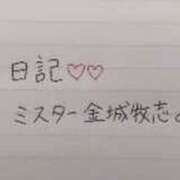 日記♡♡
ミスター金城牧志